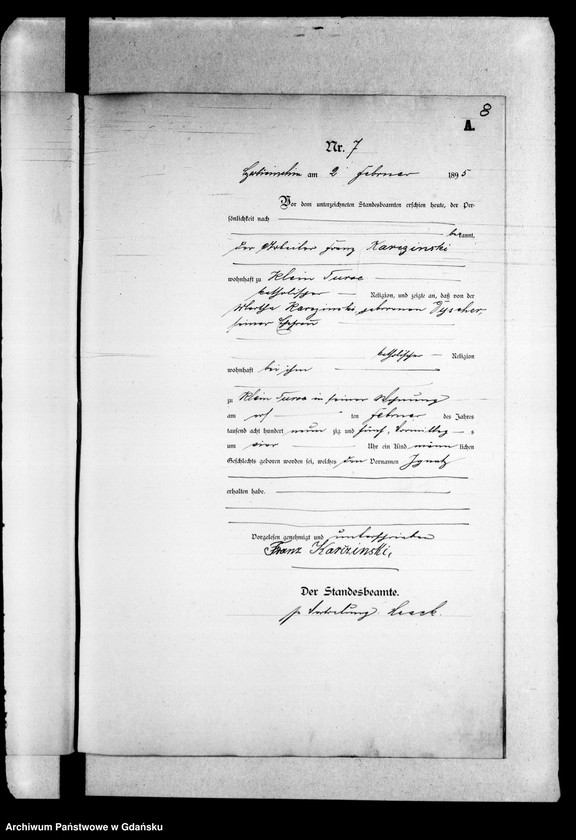 8
A.
Nr. 7
am 2 Februar 1895
Vor dem unterzeichneten Standesbeamten erschien heute, der Per-
sönlichkeit nach
bekannt,
der Arbeiter Franz Karczinski
wohnhaft zu Klein Turse
katholischer Religion, und zeigte an, daß von der
Martha Karczinski geborenen
seiner Ehefrau
katholischer Religion
wohnhaft bei ihm
zu Klein Turse in seiner Wohnung
am ersten Februar des Jahres
tausend acht hundert neunzig und fünf, Vormittags
um vier Uhr ein Kind männlichen
Geschlechts geboren worden sei, welches den Vornamen Ignatz
erhalten habe.
Vorgelesen genehmigt und unterschrieben
Franz Karczinski,
Der Standesbeamte.
Vertretung
Archiwum Państwowe w Gdańsku